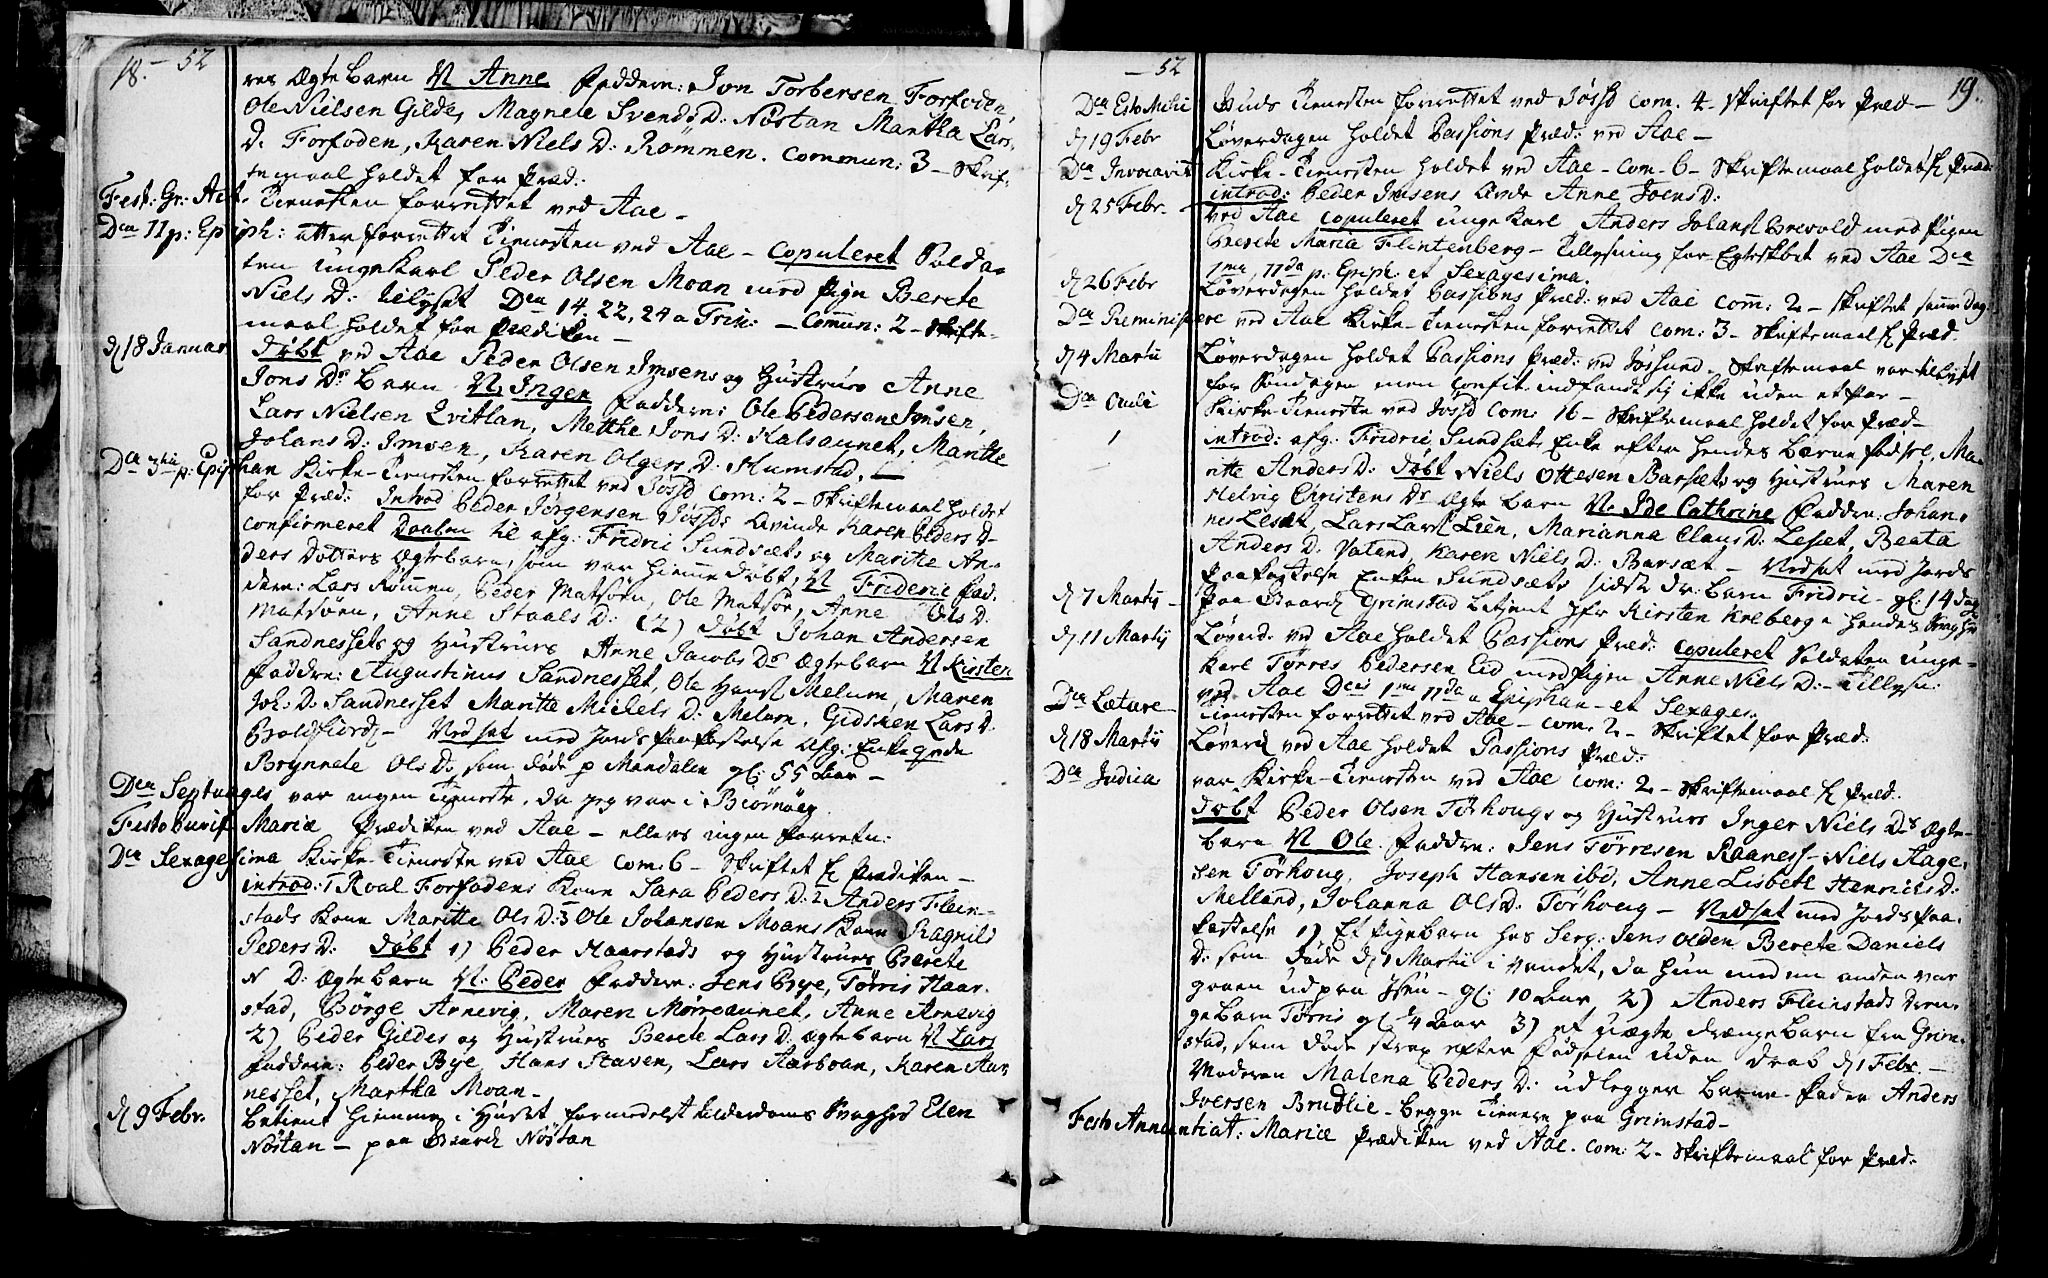 18. – 52
res Ægte Barn N Anne Faddere: Jon Torbersen Forfoden,
Ole Nielsen Gilde, Magnele Svends D: Nöstan Martha Lars
D. Forfoden, Karen Niels D: Römmen. Commun: 3 – Skrif-
temaal holdet for Præd:
Fest: Gr: Act. Tienesten forrettet ved Aae –
Dca II p: Epiph: atter forrettet Tienesten ved Aae – Copuleret Solda-
ten unge Karl Peder Olsen Moan med Pige Berete
Niels D: tillyset Dca 14. 22, 24 a Trin: – Comun: 2 – Skrifte-
maal holdet for Prædiken –
d 18 Januar. Döbt ved Aae Peder Olsen Imsens og Hustrues Anne
Jons Ds Barn N Inger Faddere: Ole Pedersen Imsen,
Lars Nielsen Qvitlan, Metthe Jons D: Kalsaunet, Marithe
Johans D: Imsen, Karen Olgers D: Humstad,
Dca 3tia p: Epiphan Kirke-Tienesten forrettet ved Jössd Com: 2 – Skriftemaal holdet
for Præd: Introd Peder Jörgensen Jössds Qvinde Karen Peders D –
Confirmeret Daaben til afg: Fridric Sundsæts og Marithe An-
ders Dotters Ægtebarn, som var hiemme döbt, N Frideric Fad-
dere: Lars Römen, Peder Matsöen, Ole Matsöe, Anne Ols D:
Matsöen, Anne Staals D: (2) Döbt Johan Andersen
Sandnessets og Hustrues Anne Jacobs Ds Ægtebarn N Kirsten
Faddre: Augustinus Sandnesset, Ole Hansl Melum, Maren
Joh: D: Sandnesset Maritte Michels D: Melum, Gidsken Lars D:
Boldfiord – Vedset med Jords Paakastelse Afg: Enke gede
Brynnete Ols D: som döde p Mendalen gl: 55 Aar –
Dca Septuages var ingen Tieneste, da jeg var i Biörnöer
Festo Purif. Mariæ Prædiken ved Aae – ellers ingen forretn:
Dca Sexagesima Kirke-Tieneste ved Aae Com: 6 – Skriftet f Prædiken –
introd: 1 Roal Forfodens Kone Sara Peders D: 2 Anders Flein-
stads Kone Maritte Ols D: 3 Ole Johansen Moans Kone Ragnild
Peders D: Döbt 1) Peder Haarstads og Hustrues Berete
N D: Ægte Barn N: Peder Faddere: Jens Bye, Törris Haar-
stad, Börge Arnevig, Maren Mörreaunet, Anne Arnevig
2) Peder Gildes og Hustrues Berete Lars D: Ægtebarn N Lars
Faddere: Peder Bye, Hans Staven, Lars Aarboan, Karen Aar-
nesset, Martha Moan –
d 9 Febr. betient hiemme i Huset formedelst Alderdoms Svaghed Elen
Nöstan – paa Gaard Nöstan
– 52
19.
Dca Esto Mihi Guds Tienesten forrettet ved Jössd Com. 4 – skriftet for Præd –
d 19 Febr Löverdagen holdet Passions Præd: ved Aae –
Dca Invocavit Kirke-Tienesten holdet ved Aae – Com – 6 – Skriftemaal holdet f Præd:
introd: Peder Imsens Qvde Anne Joens D:
d 25 Febr. – ved Aae Copuleret unge Karl Anders Johansl Brevold med Pigen
Berete Maria Flintenberg – Tillysning for Egteskabet ved Aae Dca
1ma, 11da p: Epiph: et Sexagesima.
d 26 Febr Löverdagen holdet Passions Præd: ved Aae Com: 2 – Skriftet same Dag
Dca Reminiscere ved Aae Kirke-Tienesten forrettet Com: 3 – Skriftemaal f Præd.
d 4 Martii Löverdagen holdet Passions Præd: ved Jössund – Skriftemaal var tillyst
for Söndagen men Confit: indfandt sig ikke uden et Par –
Dca Oculi Kirke-Tieneste ved Jössd Com: 16 – Skriftemaal holdet for Præd –
introd: afg: Fridric Sundsæts Enke efter hendes Barne födsel, Ma-
ritte Anders D: Döbt Niels Ottesen Barsets og Hustrues Maren
Helvig Christens Ds Ægte Barn N. Ide Cathrine Faddre: Johan-
nes Leset, Lars Larsl Lien, Marianna Claus D: Leset, Beata
Anders D: Valand, Karen Niels D: Barsæt – Vedset med Jords
Paakastelse Enken Sundsæts sidste dr: Barn Fridric – gl: 14 dage
d 7 Martij – Paa Gaard Grimstad betient Jfr Kirsten Krebergs i hendes Svaghd
d 11 Martij Löverd. ved Aae holdet Passions Præd: Copuleret Soldaten unge-
Karl Törres Pedersen Eid med Pigen Anne Niels D: – Tillysn:
ved Aae Dcis 1ma 11da a Epiphan – et Sexages:
Dca Lætare – Tienesten forrettet ved Aae – Com: 2 – Skriftet for Præd:
d 18 Martii Löverd ved Aae holdet Passions Præd:
Dca Judica var Kirke-Tienesten ved Aae Com: 2 – Skriftemaal f Præd:
Döbt Peder Olsen Törhougs og Hustrues Inger Niels Ds Ægte-
barn N Ole. Faddre: Jens Törresen Raaness – Niels Aage-
sen Törhoug, Joseph Hansen ibd, Anne Lisbeth Henrichs D:
Melland, Johanna Ols D: Törhoug – Vedset med Jords Paa-
kastelse 1) Et Pigebarn hos Serg: Jens Olden Berete Daniels
D: som döde d 1 Martii i Vandet, da hun med en anden var
gaaen ud paa Isen – gl: 10 Aar, 2) Anders Fleinstads Dren-
gebarn Törris gl: 4 Aar 3) et uægte drængebarn fra Grim-
stad, som döde strax efter Födselen uden Daab d 1 Febr. –
Moderen Malena Peders D: udlegger Barne-Fader Anders
Iversen Brudlie – begge Tienere paa Grimstad –
Festo Annuntiat: Mariæ Prædiken ved Aae. Com: 2 – Skriftemaal for Præd: